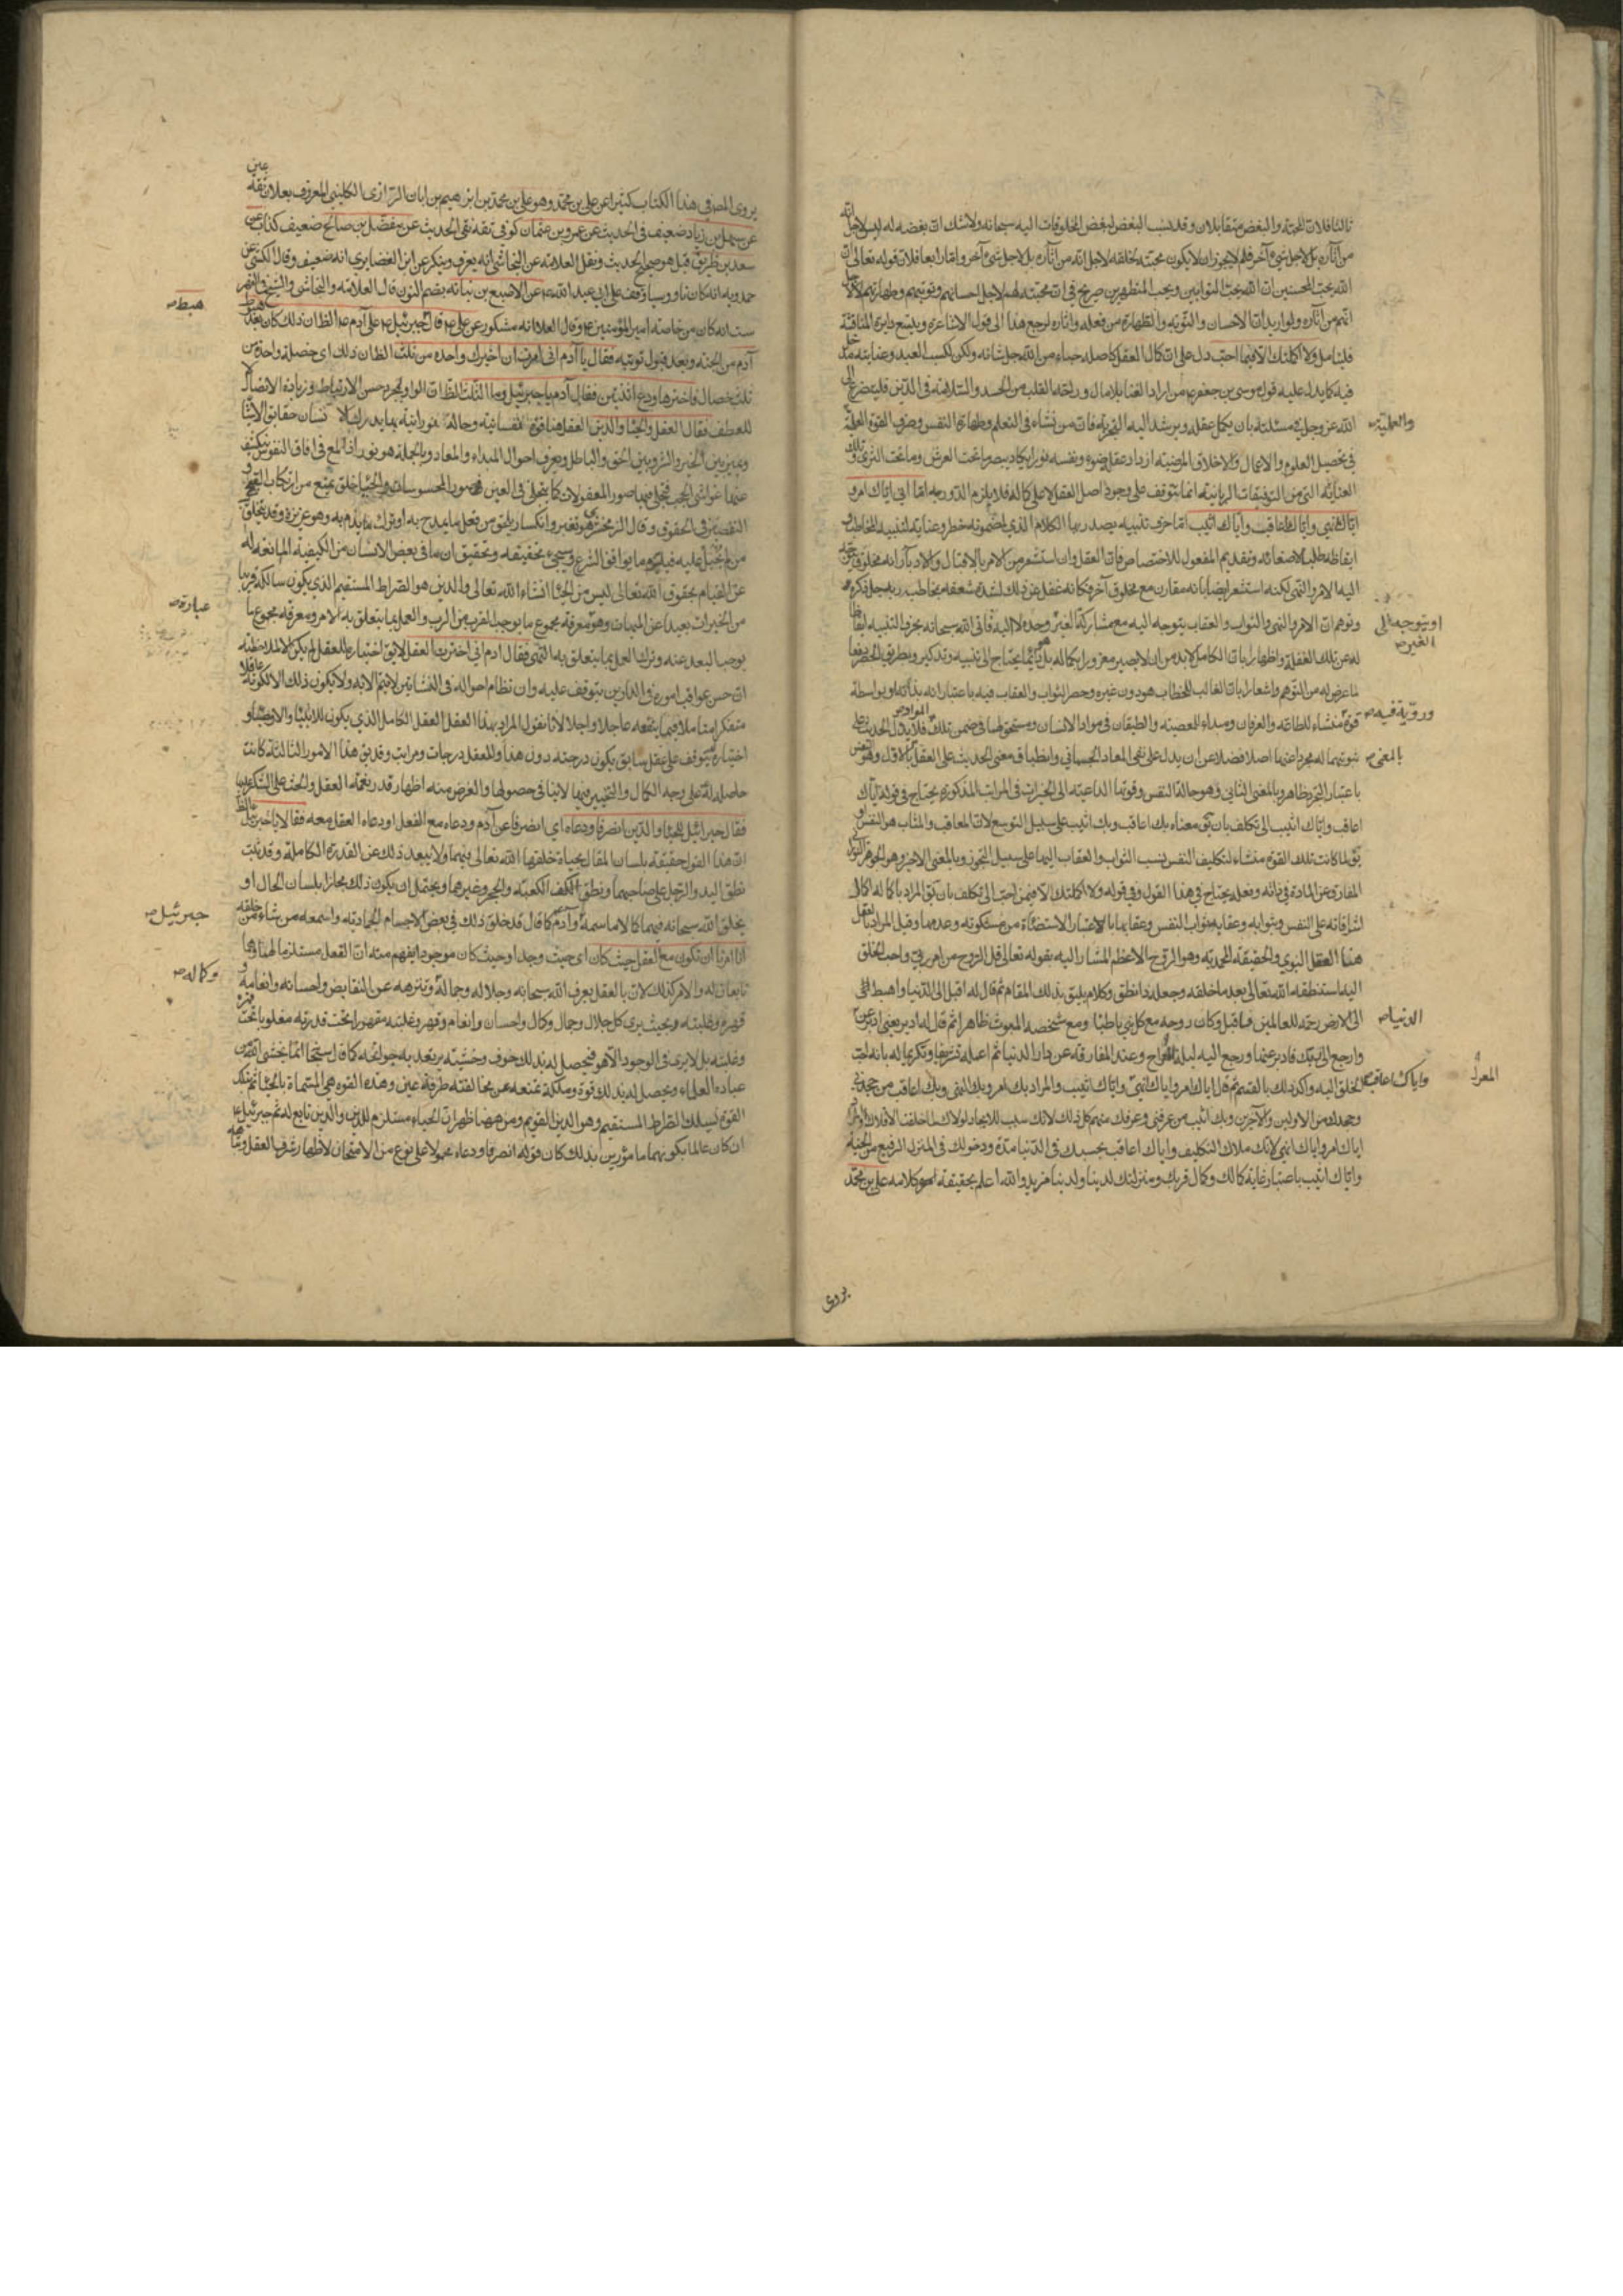 ثالثا فلان المحبة والبغض متقابلان وقد نسب البغض لبغض المخلوقات اليه سبحانه ولا شك ان بغضه له ليس لاجل انه
من آثاره بل لاجل شيء آخر فلم لا يجوز ان لا يكون محبته لخلقه لاجل انه من آثاره بل لاجل شيء آخر واما رابعا فلان قوله تعالى ان
الله يحب المحسنين ان الله يحب التوابين ويحب المتطهرين صريح في ان محبته لهم لاجل احسانهم وتوبتهم وطهارتهم لا لاجل
انهم من آثاره ولو اريد ان الاحسان والتوبة والطهارة من فعله وآثاره لرجع هذا الى قول الاشاعرة ويتسع دايرة المناقشة
فليتامل ولا اكملتك الا فيما احب دل على ان كمال العقل كاصله حباء من الله جل شانه ولكن لكسب العبد وعنايته مدخل
فيه كما يدل عليه قول موسى بن جعفر من اراد الغنا بلا مال وراحة القلب من الحسد والسلامة في الدين فليتضرع الى
الله عز وجل في مسئلته بان يكمل عقله ويرشد اليه التجربة فان من نشاء في التعلم وطهارة النفس وصرف القوة العلمية
والعملية
في تحصيل العلوم والاعمال والاخلاق المرضية ازداد عقله ضوء ونفسه نورا يكاد يبصر ما تحت العرش وما تحت الثرى وتلك
العناية التي من التوفيقات الربانية انما يتوقف على وجود اصل العقل لا على كماله فلا يلزم الدور اما اني اياك امر و
اياك انهي واياك اعاقب واياك اثيب اما حرف تنبيه يصدر بها الكلام الذي لمضمونه خطر وعناية لتنبيه المخاطب و
ايقاظه طلبا لاصغائه وتقديم المفعول للاختصاص فان العقل وان استشعر من الامر بالاقبال والادبار انه مخلوق
اليه الامر والنهي لكنه استشعر ايضا بانه مقارن مع مخلوق آخر فكانه غفل عن ذلك لشدة شعفه بمخاطب ربه جل ذكره
وتوهم ان الامر والنهي والثواب والعقاب يتوجه اليه مع مشاركة الغير وحده لا اليه فاتى الله سبحانه بحرف التنبيه ايقاظا
او يتوجه الى الغير
له عن تلك الغفلة واظهارا بان الكامل لا بد من ان لا يصير مغرورا بكماله بل دائما يحتاج الى تنبيه وتذكير وبطريق الحصر دفعا
لما عرض له من التوهم واشعارا بان الغالب للخطاب هو دون غيره وحصر الثواب والعقاب فيه باعتبار انه بذاته او بواسطة
قوة منشاء للطاعة والعرفان ومبداء للمعصية والطغيان في مواد الانسان ومستحق لهما في ضمن تلك المواد فلا يدل الحديث على
بالمعنى ثبوتهما له مجردا عنهما اصلا فضلا عن ان يدل على نفي المعاد الجسماني وانطباق معنى الحديث على العقل
باعتبار التجرد ظاهر وبالمعنى الثاني وهو حالة النفس وقوتها الداعية الى الخيرات في المراتب المذكورة يحتاج في قوله اياك
اعاقب واياك اثيب الى تكلف بان يق معناه بك اعاقب وبك اثيب على سبيل التوسع لان المعاقب والمثاب هو النفس او
يق لما كانت تلك القوة منشاء لتكليف النفس نسب الثواب والعقاب اليها على سبيل التجوز وبالمعنى الاخير وهو الجوهر
المفارق عن المادة في ذاته وفعله يحتاج في هذا القول وفي قوله ولا اكملتك الا فيمن احب الى تكلف بان يق المراد باكماله اكمال
اشراقاته على النفس وبثوابه وعقابه ثواب النفس وعقابها بالاعتبار الاستضائة من مشكوته وعدمها وقيل المراد بالعقل
هنا العقل النبوي والحقيقة المحمدية وهو الروح الاعظم المشار اليه بقوله تعالى قل الروح من امر ربي واحب الخلق
اليه استنطقه الله تعالى بعد ما خلقه وجعله ذا نطق وكلام يليق بذلك المقام ثم قال له اقبل الى الدنيا واهبط
الى الارض رحمة للعالمين فاقبل وكان روحه مع كل نبي باطنا ومع شخصه المبعوث ظاهرا ثم قال له ادبر يعني ادبر عن
الدنيا
وارجع الى ربك فادبر عنها ورجع اليه ليلة المعراج وعند المفارقة عن دار الدنيا ثم اعلمه تشريفا وتكريما له بانه احب
المعراج
الخلق اليه واكد ذلك بالقسم ثم قال اياك امر واياك انهي واياك اثيب والمراد بك امر وبك انهى وبك اعاقب من جحدني
واياك اعاقب
وجحدك من الاولين والآخرين وبك اثيب من عرفني وعرفك منهم كل ذلك لانك سبب للايجاد لولاك لما خلقت الافلاك
اياك امر واياك انهي لانك ملاك التكليف واياك اعاقب بحبسك في الدنيا مدة ودخولك في المنزل الرفيع من الجنة
واياك اثيب باعتبار غاية كمالك وكمال قربك ومنزلتك لدينا ولدينا مزيد والله اعلم بحقيقة كلامه علي بن محمد
يروى
يروى المص في هذا الكتاب كثيرا عن علي بن محمد وهو علي بن محمد بن ابراهيم بن ابان الرازي الكليني المعروف بعلان ثقة عين
عن سهل بن زياد ضعيف في الحديث عن عمرو بن عثمان كوفي ثقة نقي الحديث عن مفضل بن صالح ضعيف كذاب عن
سعد بن طريف قيل هو صحيح الحديث ونقل العلامة عن النجاشي انه يعرف وينكر وعن ابن الغضايري انه ضعيف وقال الكشي عن
حمدويه انه كان ناووسيا وقف على ابي عبد الله عن الاصبغ بن نباته بضم النون قال العلامة والنجاشي والشيخ في الفهر
ست انه كان من خاصة امير المؤمنين ع وقال العلامة انه مشكور عن علي ع قال هبط جبرئيل ع على آدم ع الظ ان ذلك كان بعد
هبط
آدم من الجنة وبعد قبول توبته فقال يا آدم اني امرت ان اخيرك واحدة من ثلث الظ ان ذلك اي خصلة واحدة من
ثلث خصال فاخترها ودع اثنتين فقال آدم يا جبرئيل وما الثلث الظ ان الواو لمجرد حسن الارتباط وزيادة الاتصال لا
للعطف فقال العقل والحياء والدين العقل هنا قوة نفسانية وحالة نورانية بها يدرك الانسان حقايق الاشياء
ويميز بين الخير والشر وبين الحق والباطل ويعرف احوال المبداء والمعاد وبالجملة هو نور اذا لمع في آفاق النفوس يكشف
عنها غواشي الحجب فتجلى فيها صور المعقولات كما يتجلى في العين صور المحسوسات والحياء خلق يمنع من ارتكاب القبيح و
التقصير في الحقوق وقال الزمخشري هو تغير وانكسار يلحق من فعل ما يمدح به او ترك ما يذم به وهو غريزة وقد يتخلق
من لم يجبل عليه فيلتزم منه ما يوافق الشرع وسيجيء تحقيقه وتحقيق ان ما في بعض الانسان من الكيفية المانعة له
عن القيام بحقوق الله تعالى ليس من الحياء انشاء الله تعالى والدين هو الصراط المستقيم الذي يكون سالكه قريبا
من الخيرات بعيدا عن السيئات وهو معرفة مجموع ما يوجب القرب من الرب والعمل بما يتعلق به الامر ومعرفة مجموع ما
عبارة
يوجب البعد عنه وترك العمل بما يتعلق به النهي فقال آدم اني اخترت العقل لا يق اختياره للعقل لم يكن الا لملاحظة
ان حسن عواقب اموره في الدارين يتوقف عليه وان نظام احواله في النشاتين لا يتم الا به ولا يكون ذلك الا لكونه عاقلا
متفكرا متاملا فيما ينفعه عاجلا واجلا لانا نقول المراد بهذا العقل العقل الكامل الذي يكون للانبياء والاوصياء و
اختياره يتوقف على عقل سابق يكون درجته دون هذا وللعقل درجات ومراتب وقد يق هذا الامور الثلاثة كانت
حاصلة له على وجه الكمال والتخيير فيها لا ينافي حصولها والغرض منه اظهار قدر نعمة العقل والحث على الشكر عليها
فقال جبرائيل للحياء والدين انصرفا ودعاه اي انصرفا عن آدم ودعاه مع العقل او دعاه العقل معه فقالا يا جبرئيل الظ
ان هذا القول حقيقة بلسان المقال بحياة خلقها الله تعالى فيهما ولا يبعد ذلك عن القدرة الكاملة وقد ثبت
نطق اليد والرجل على صاحبهما ونطق الكف الكعبة والحجر وغيرها ويحتمل ان يكون ذلك مجازا بلسان الحال او
يخلق الله سبحانه فيهما كلاما سمعه آدم كما قال قد خلق ذلك في بعض الاجسام الجمادية واسمعه من شاء من خلقه
جبرئيل
انا امرنا ان نكون مع العقل حيث كان اي حيث وجد او حيث كان موجودا يفهم منه ان العقل مستلزم لهما وهما
تابعان له والامر كذلك لان بالعقل يعرف الله سبحانه وجلاله وجماله وتنزهه عن النقايص واحسانه وانعامه و
وكماله
قهره وغلبته وبحيث يرى كل جلال وجمال وكمال واحسان وانعام وقهر وغلبته مقهورا تحت قدرته مغلوبا تحت
وغلبته بل لا يرى في الوجود الا هو فيحصل له بذلك خوف وخشية يرتعد به جوانحه كما قال سبحانه انما يخشى الله من
عباده العلماء ويحصل له بذلك قوة وملكة تمنعه عن مخالفته طرفة عين وهذه القوة هي المسماة بالحياء ثم بتلك
القوة ليسلك الصراط المستقيم وهو الدين القويم ومن ههنا ظهر ان الحياء مستلزم للدين والدين تابع له ثم جبرئيل ع
ان كان عالما بكونهما مامورين بذلك كان قوله انصرفا ودعاه محمولا على نوع من الامتحان لاظهار شرف العقل